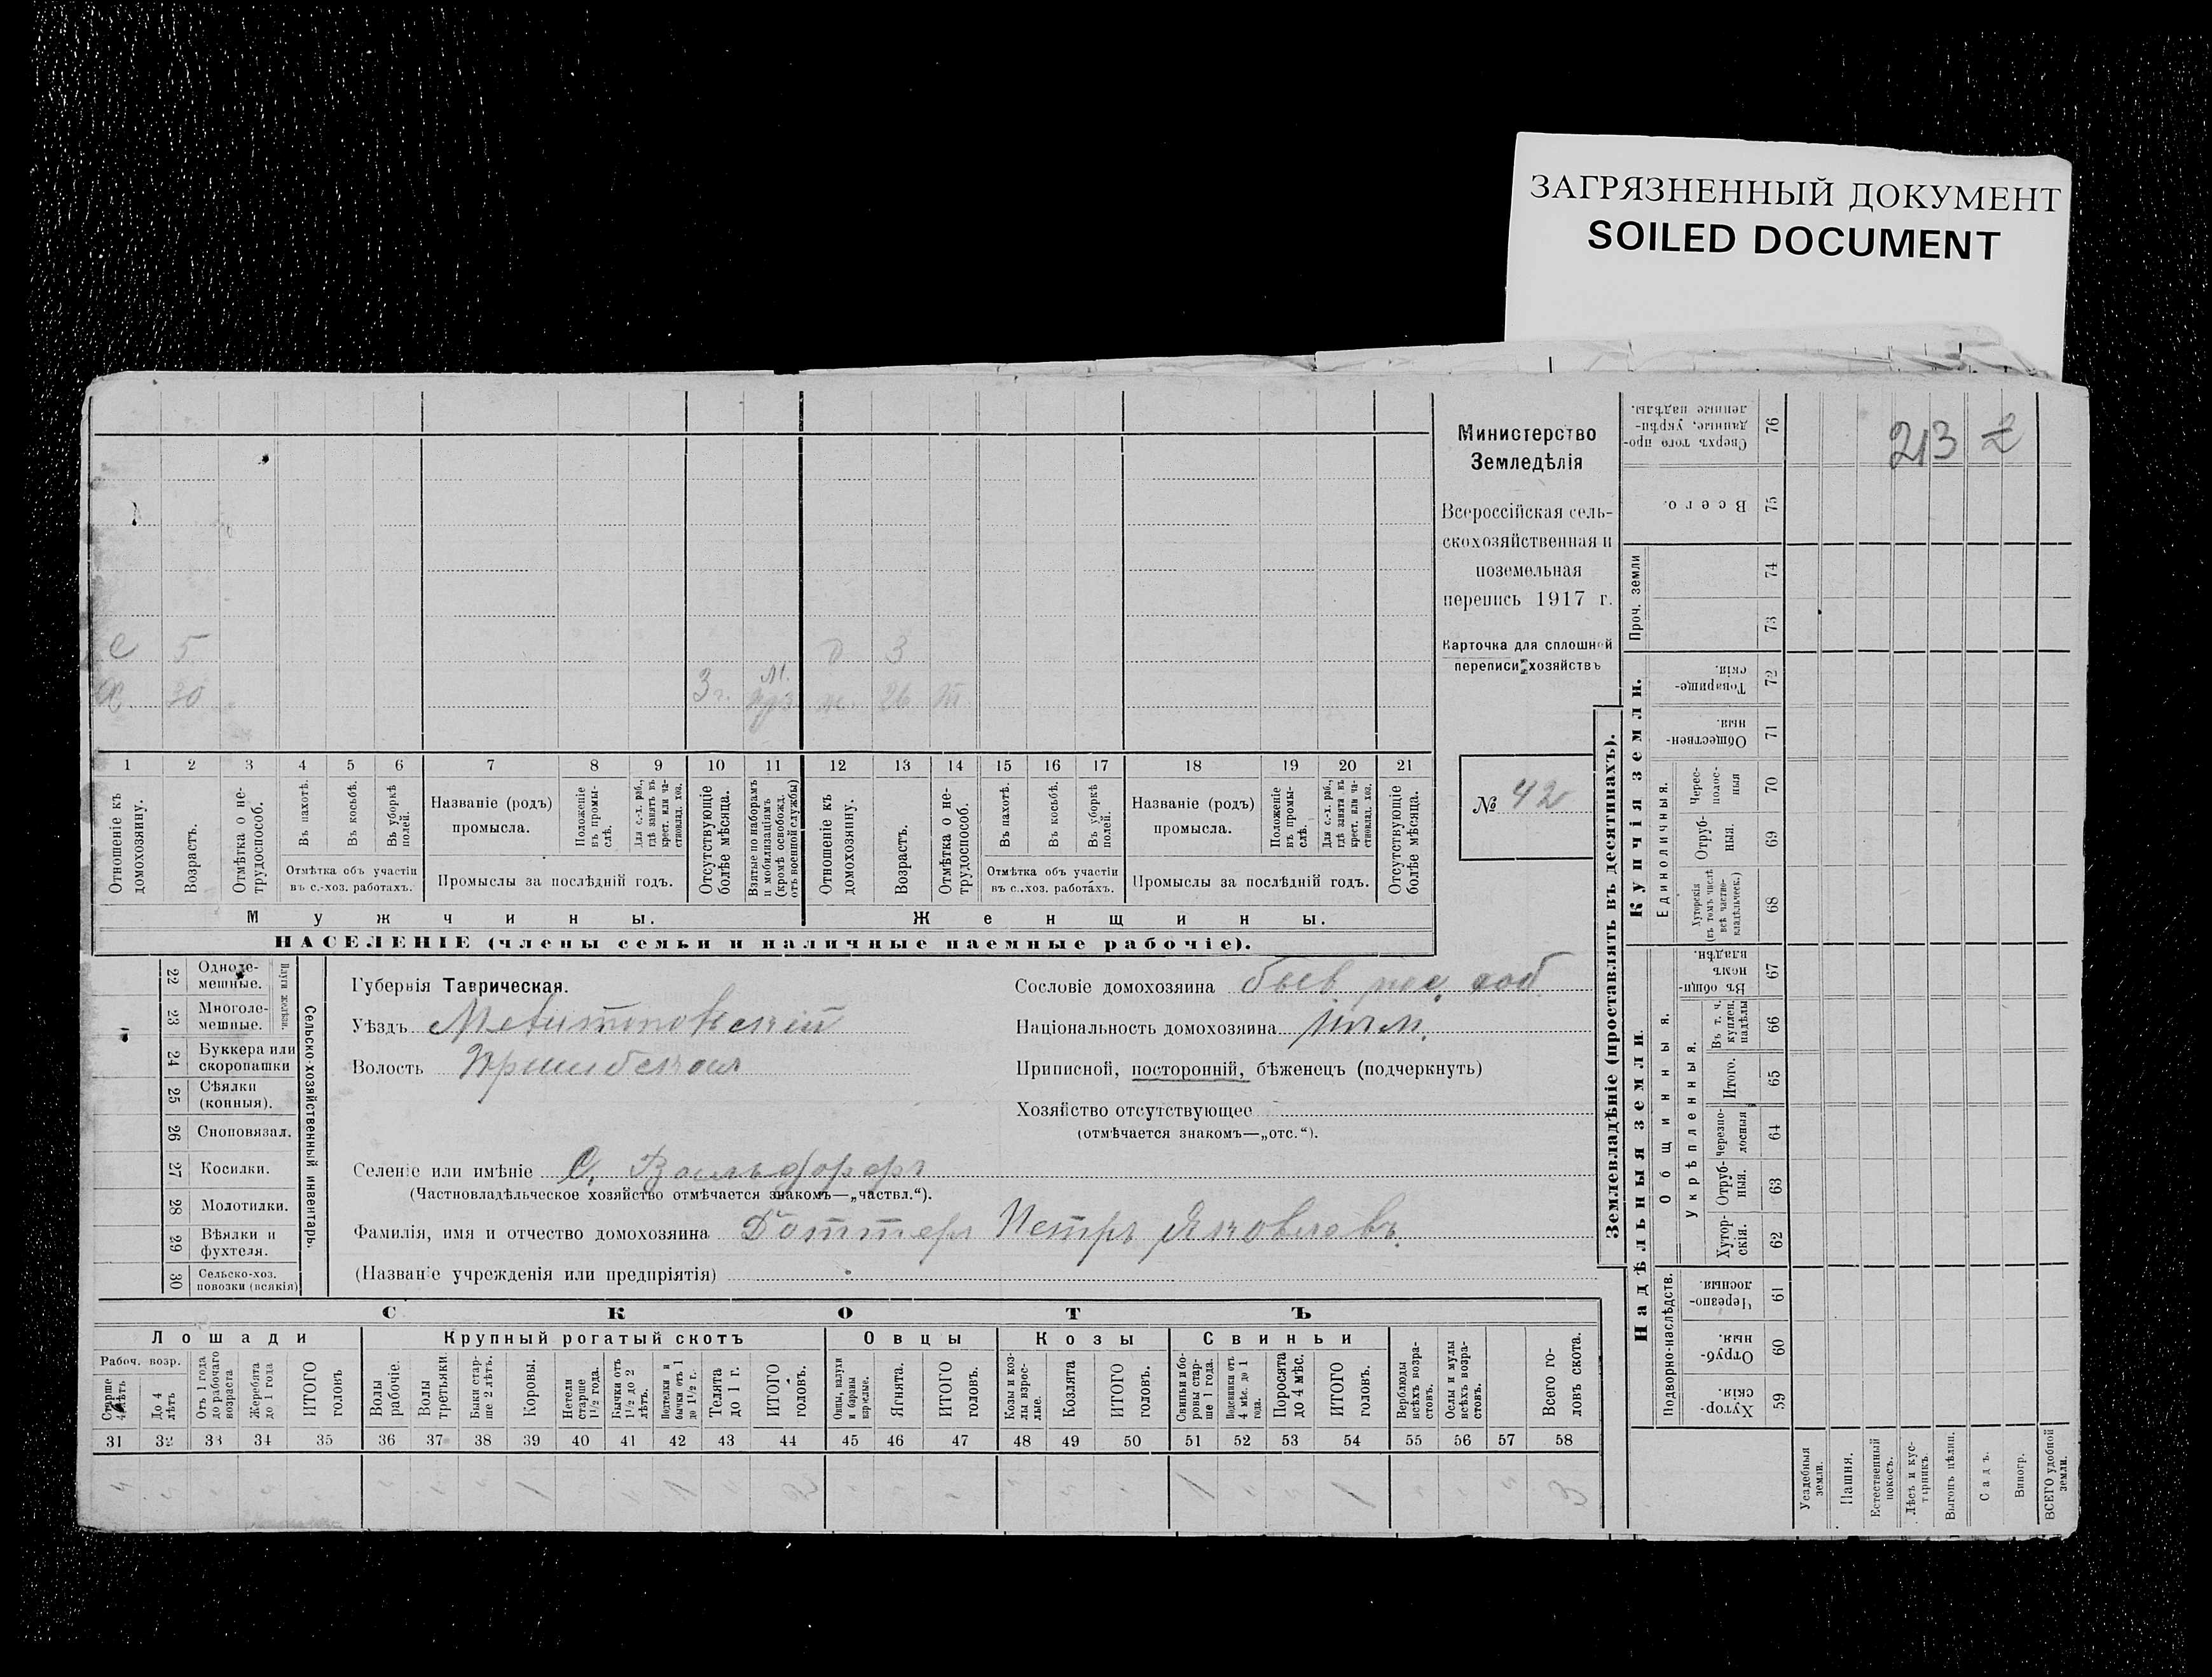 ЗАГРЯЗНЕННЫЙ ДОКУМЕНТ
SOILED DOCUMENT
213
Министерство
Земледѣлія
Всероссійская сель-
скохозяйственная и
поземельная
перепись 1917 г.
Карточка для сплошной
переписи хозяйствъ
№ 42
С 5 д 3
Х 30 3 г. М. ж. 26
1 2 3 4 5 6 7 8 9 10 11 12 13 14 15 16 17 18 19 20 21
Отношеніе къ домохозяину.
Возрастъ.
Отмѣтка о не-трудоспособ.
Въ пахотѣ.
Въ косьбѣ.
Въ уборкѣ полей.
Отмѣтка объ участіи
въ с.-хоз. работахъ.
Названіе (родъ)
промысла.
Положеніе въ промы-слѣ.
Для с.-х. раб., гдѣ занятъ въ крест. или ча-стновлад. хоз.
Промыслы за послѣдній годъ.
Отсутствующіе болѣе мѣсяца.
Взятые по наборамъ и мобилизаціямъ (кромѣ освобожд. отъ военной службы)
Отношеніе къ домохозяину.
Возрастъ.
Отмѣтка о не-трудоспособ.
Въ пахотѣ.
Въ косьбѣ.
Въ уборкѣ полей.
Отмѣтка объ участіи
въ с.-хоз. работахъ.
Названіе (родъ)
промысла.
Положеніе въ промы-слѣ.
Для с.-х. раб., гдѣ занята въ крест. или ча-стновлад. хоз.
Промыслы за послѣдній годъ.
Отсутствующіе болѣе мѣсяца.
Мужчины. Женщины.
НАСЕЛЕНІЕ (члены семьи и наличные наемные рабочіе).
22 Одноле-мешные.
23 Многоле-мешные.
Плуги желѣзн.
24 Буккера или скоропашки
25 Сѣялки (конныя).
26 Сноповязал.
27 Косилки.
28 Молотилки.
29 Вѣялки и фухтеля.
30 Сельско-хоз. повозки (всякія)
Сельско-хозяйственный инвентарь.
Губернія Таврическая.
Уѣздъ Мелитопольскій
Волость Пришибская
Селеніе или имѣніе С. Вальдорфъ
(Частновладѣльческое хозяйство отмѣчается знакомъ—„частвл.“).
Фамилія, имя и отчество домохозяина Доттеръ Петръ Яковлевъ.
(Названіе учрежденія или предпріятія)
Сословіе домохозяина быв. пос. соб.
Національность домохозяина нѣм.
Приписной, посторонній, бѣженецъ (подчеркнуть)
Хозяйство отсутствующее
(отмѣчается знакомъ—„отс.“).
СКОТЪ
Лошади Крупный рогатый скотъ Овцы Козы Свиньи
Рабоч. возр.
Старше 4 лѣтъ
До 4 лѣтъ
Отъ 1 года до рабочаго возраста
Жеребята до 1 года
ИТОГО головъ
Волы рабочіе.
Волы третьяки.
Быки стар-ше 2 лѣтъ.
Коровы.
Нетели старше 1½ года.
Бычки отъ 1½ до 2 лѣтъ.
Подтелки и бычки отъ 1 до 1½ г.
Телята до 1 г.
ИТОГО головъ.
Овцы, валухи и бараны взрослые.
Ягнята.
ИТОГО головъ.
Козы и коз-лы взрос-лые.
Козлята
ИТОГО головъ.
Свиньи и бо-ровы стар-ше 1 года.
Подсвинки отъ 4 мѣс. до 1 года.
Поросята до 4 мѣс.
ИТОГО головъ.
Верблюды всѣхъ возра-стовъ.
Ослы и мулы всѣхъ возра-стовъ.
Всего го-ловъ скота.
31 32 33 34 35 36 37 38 39 40 41 42 43 44 45 46 47 48 49 50 51 52 53 54 55 56 57 58
1 1 3 1 1 3
Землевладѣніе (проставлять въ десятинахъ).
Надѣльныя земли. Купчія земли. Проч. земли
Подворно-наслѣдств. Общинныя. Укрѣпленныя. Единоличныя.
Хутор-скія. 59
Отруб-ныя. 60
Черезпо-лосныя. 61
Хутор-скія. 62
Отруб-ныя. 63
Черезпо-лосныя 64
Итого. 65
Въ т. ч. куплен. надѣлы 66
Въ общин-номъ владѣн. 67
Хуторскія (въ томъ числѣ всѣ частно-владѣльческ.) 68
Отруб-ныя. 69
Черес-полос-ныя 70
Обществен-ныя. 71
Товарище-скія. 72
73
74
Всего. 75
Сверхъ того про-данные, укрѣп-ленные надѣлы. 76
Усадебныя земли.
Пашня.
Естественный покосъ.
Лѣсъ и кус-тарникъ.
Выгонъ цѣлин.
Садъ.
Виногр.
ВСЕГО удобной земли.